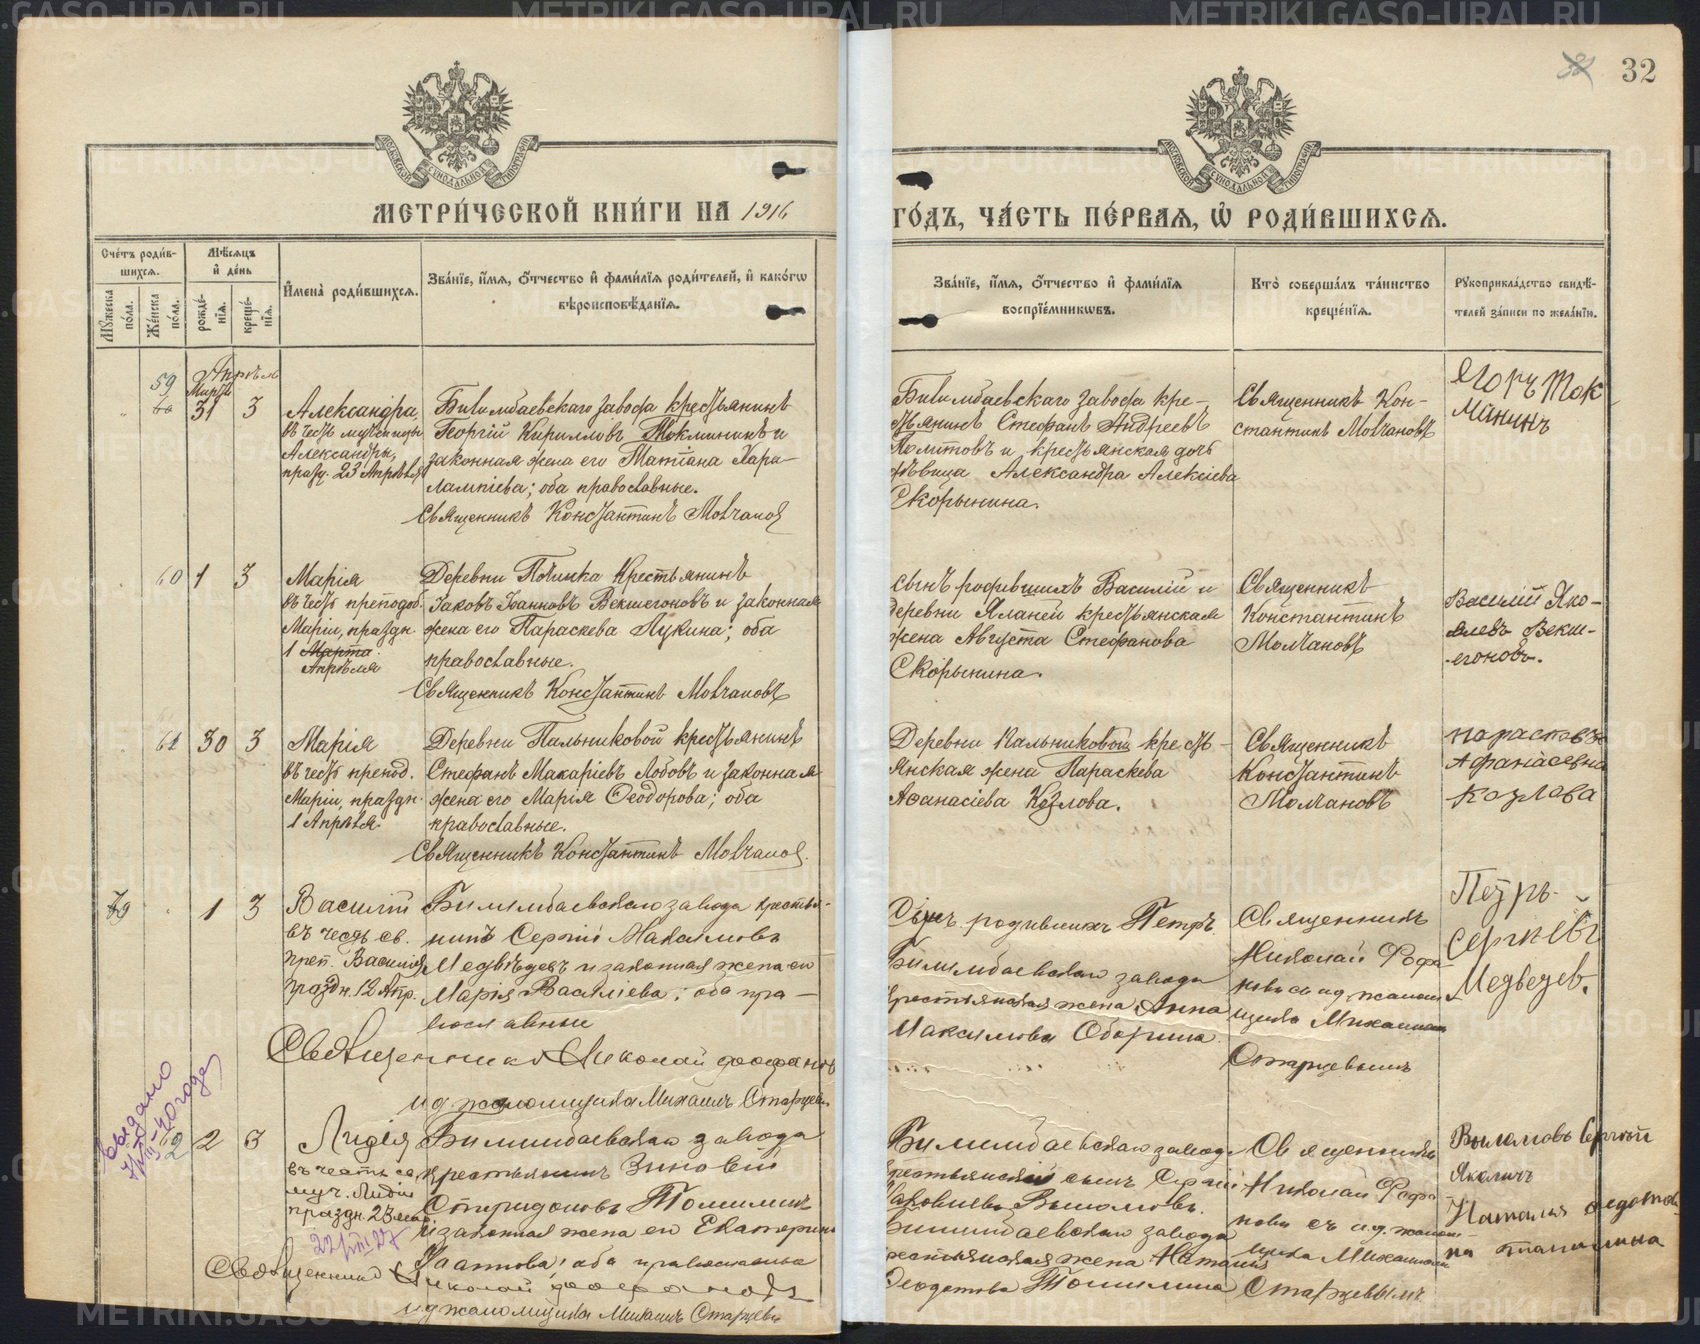 32
МЕТРИ́ЧЕСКОЙ КНИ́ГИ НА 1916
ГО́ДЪ, ЧА́СТЬ ПЕ́РВАЯ, Ѡ РОДИ́ВШИХСЯ.
Сче́тъ роди́в-
шихся.
Мѣ́сяцъ
и де́нь
Мꙋжеска по́ла.
Же́нска по́ла.
рожде́-
нїя.
креще́-
нїя.
Имена̀ роди́вшихся.
Зва́нїе, и́мя, о́тчество и фами́лїя роди́телей, и како́гѡ
вѣроисповѣ́данїя.
Зва́нїе, и́мя, о́тчество и фами́лїя
воспрїе́мникѡвъ.
Кто̀ соверша́лъ та́инство
креще́нїя.
Рꙋкоприкла́дство свидѣ́-
телей за́писи по жела́нїю.
Апрѣль
59
Мартъ
31 3
Александра,
въ честь мученицы
Александры,
празд. 23 Апрѣля
Билимбаевскаго завода крестьянинъ
Георгій Кирилловъ Токмининъ и
законная жена его Татіана Хара-
лампіева; оба православные.
Священникъ Константинъ Молчановъ
Билимбаевскаго завода кре-
стьянинъ Стефанъ Андреевъ
и крестьянская дочь
дѣвица Александра Алексіева
Скорынина.
Священникъ Кон-
стантинъ Молчановъ
Ягоръ Ток
мининъ
60 1 3
Марія
въ честь преподоб.
Маріи, праздн.
1 Марта
Апрѣля
Деревни Починка Крестьянинъ
Іаковъ Іоанновъ Векшегоновъ и законная
жена его Параскева Лукина; оба
православные.
Священникъ Константинъ Молчановъ
Сынъ родившихъ Василій и
деревни крестьянская
жена Августа Стефанова
Скорынина.
Священникъ
Константинъ
Молчановъ
Василій Яко-
влевъ Векш-
егоновъ.
61 30 3
Марія
въ честь препод.
Маріи, праздн.
1 Апрѣля.
Деревни Пальниковой крестьянинъ
Стефанъ Макаріевъ Лобовъ и законная
жена его Марія Ѳеодорова; оба
православные.
Священникъ Константинъ Молчановъ.
Деревни Пальниковой кресть-
янская жена Параскева
Аѳанасіева Козлова.
Священникъ
Константинъ
Молчановъ
Параскове
Афанасевна
Козлова
79 1 3
Василій
въ честь св.
преп. Василія
праздн. 12 Апр.
Билимбаевскаго завода крестья-
нинъ Сергій Максимовъ
Медвѣдевъ и законная жена его
Марія Василіева; оба пра-
вославные
Священникъ Николай Феофановъ
и д. псаломщика Михаилъ Старцевъ
Сынъ родившихъ Петръ.
Билимбаевскаго завода
крестьянская жена Анна
Максимова Оборина.
Священникъ
Николай Феофа-
новъ съ и д. псалом-
щика Михаиломъ
Старцевымъ
Петръ
Сергиевъ
Медведев.
Выдано
62 2 3
Лидія
въ честь св.
муч. Лидіи
праздн. 23 мар.
Билимбаевскаго завода
крестьянинъ Зиновій
Спиридоновъ Томилинъ
и законная жена его Екатерина
оба православные
Священникъ Николай Феофановъ
и д псаломщика Михаилъ Старцевъ
Билимбаевскаго завода
крестьянскій сынъ Сергій
Билимбаевскаго завода
крестьянская жена Наталія
Ѳеодотова Томилина
Священникъ
Николай Феофа-
новъ съ и. д. псалом-
щика Михаиломъ
Старцевымъ
Сергей
Наталья федотов-
на